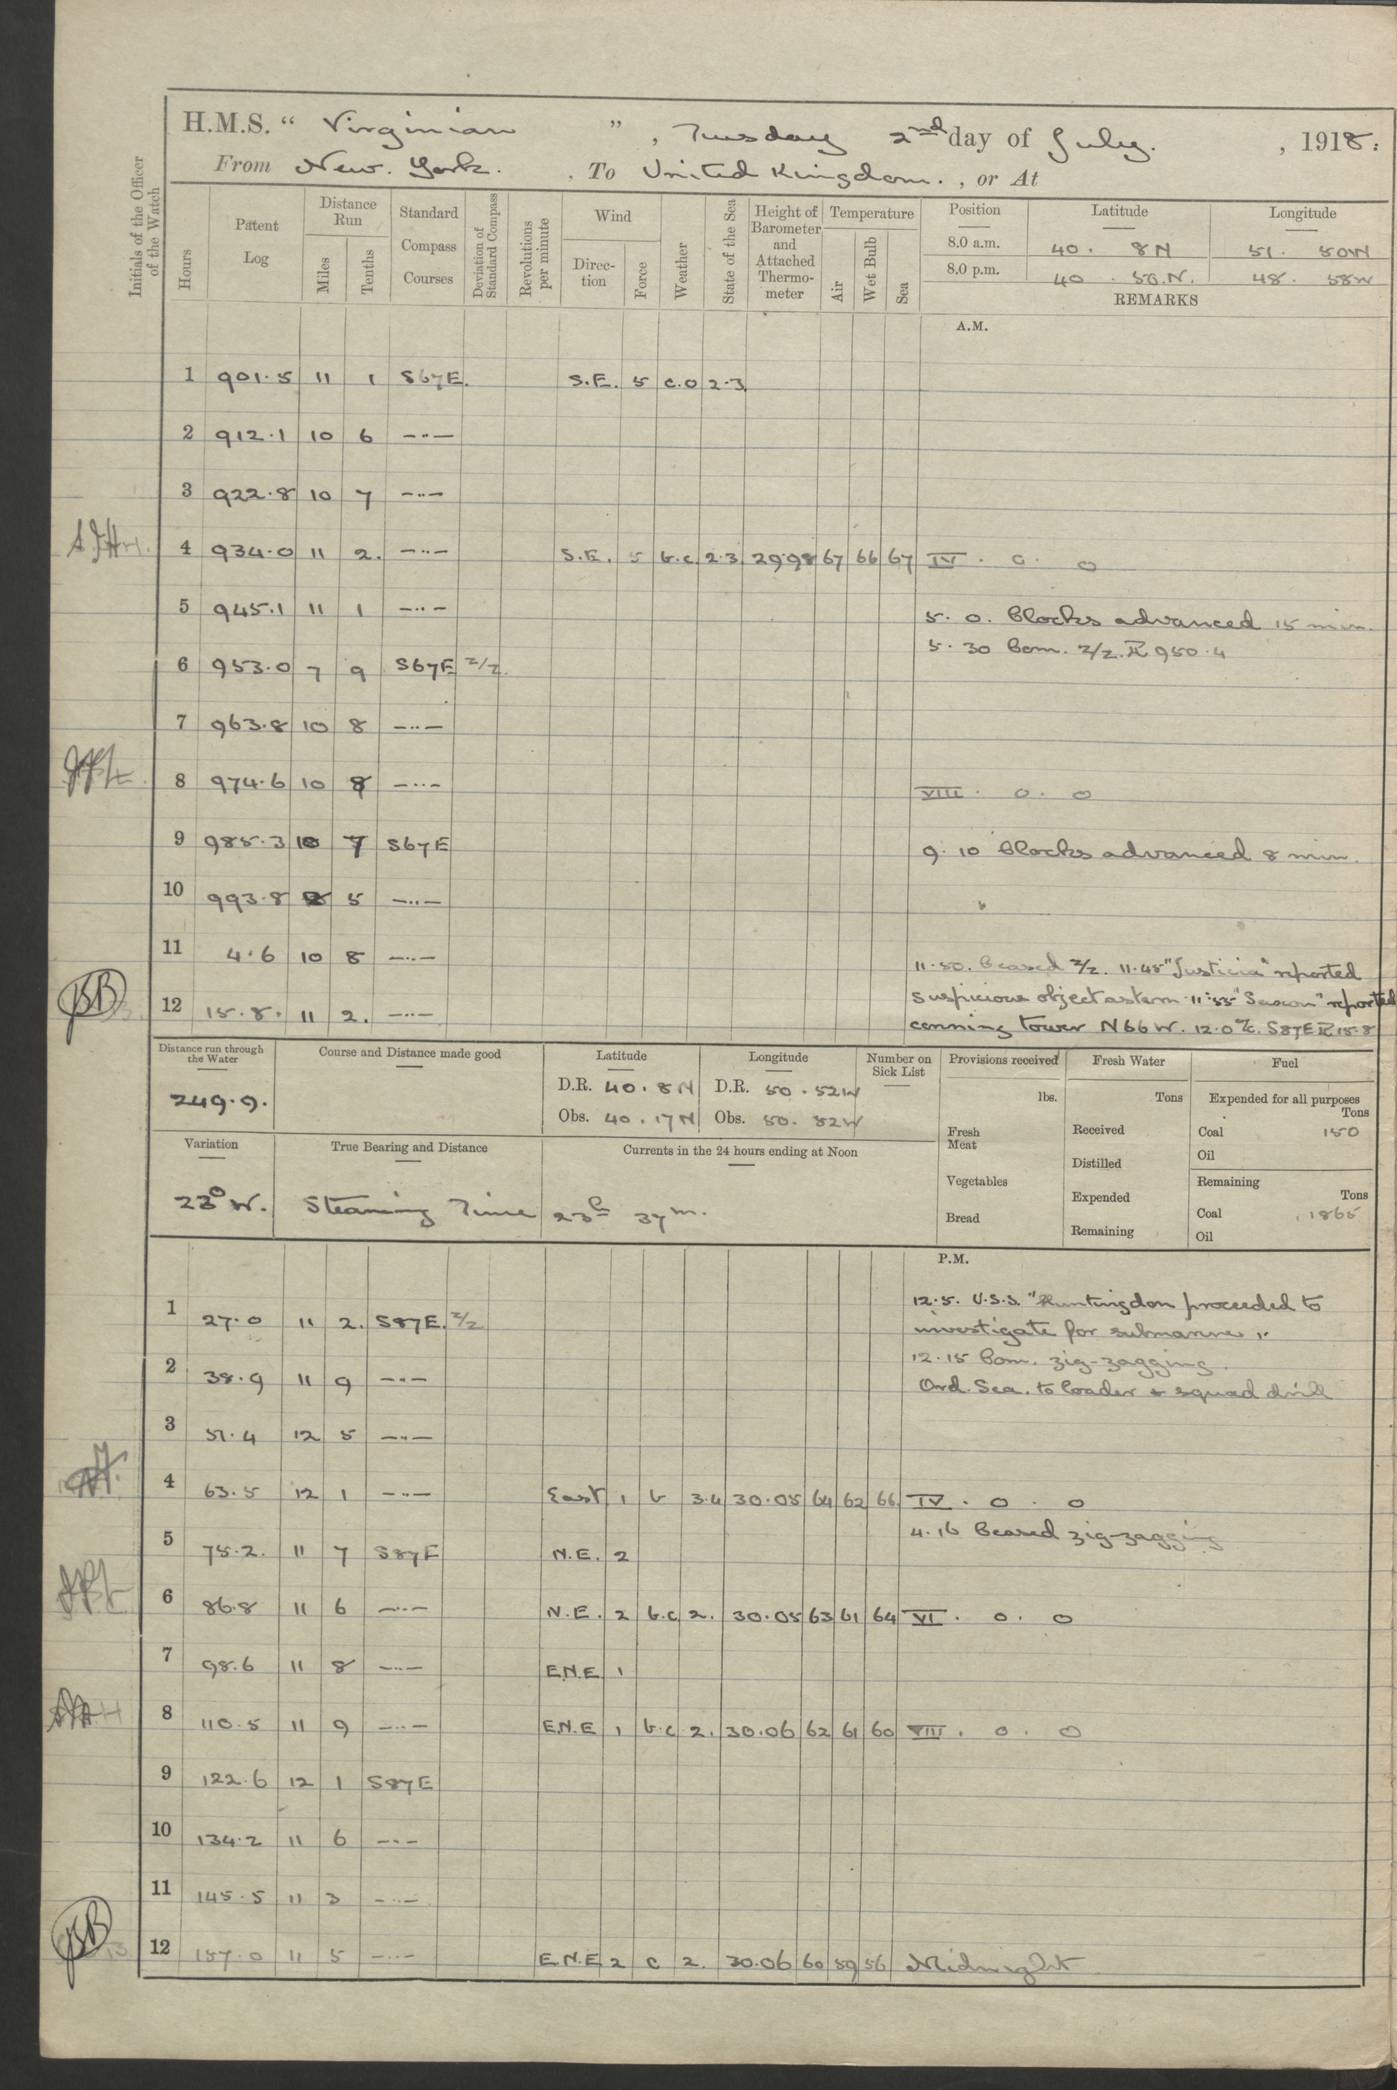 H.M.S. “ Virginian ” , Tuesday 2nd day of July. , 1918.
From New York. , To United Kingdom. , or At
Initials of the Officer of the Watch
Hours
Patent Log
Distance Run
Miles
Tenths
Standard Compass Courses
Deviation of Standard Compass
Revolutions per minute
Wind
Direction
Force
Weather
State of the Sea
Height of Barometer and Attached Thermometer
Temperature
Air
Wet Bulb
Sea
Position Latitude Longitude
8.0 a.m. 40 . 8 N 51 . 50 W
8.0 p.m. 40 . 58.N. 48 . 58 W
REMARKS
A.M.
1 901.5 11 1 S67E. S.E. 5 c.o 2.3
2 912.1 10 6 —..—
3 922.8 10 7 —..—
4 934.0 11 2. —..— S.E. 5 b.c 2.3 29.98 67 66 67 IV . 0 . 0
5 945.1 11 1 —..— 5. 0. Clocks advanced 15 min.
5. 30 Com. Z/Z. PL 950.4
6 953.0 7 9 S67E Z/Z.
7 963.8 10 8 —..—
8 974.6 10 8 —..— VIII . 0 . 0
9 985.3 10 7 S67E 9. 10 Clocks advanced 8 min.
10 993.8 8 5 —..—
11 4.6 10 8 —..— 11.50. Ceased Z/Z. 11.45 "Justicia" reported
suspicious object astern. 11.55 "Saxon" reported
12 15.8. 11 2. —..— conning tower N66W. 12.0 a/c. S87E PL 15.8
Distance run through the Water
249.9.
Course and Distance made good
Latitude Longitude
D.R. 40. 8 N D.R. 50 . 52 W
Obs. 40. 17 N Obs. 50. 52 W
Number on Sick List
Provisions received
lbs.
Fresh Meat
Vegetables
Bread
Fresh Water
Tons
Received
Distilled
Expended
Remaining
Fuel
Expended for all purposes
Tons
Coal 150
Oil
Remaining
Tons
Coal 1865
Oil
Variation
23° W.
True Bearing and Distance
Currents in the 24 hours ending at Noon
Steaming Time 23h 37m.
P.M.
1 27.0 11 2. S87E. Z/Z 12.5. U.S.S. "Huntingdon proceeded to
investigate for submarine".
2 38.9 11 9 —..— 12.15 Com. zig-zagging.
Ord. Sea. to loader & squad drill
3 51.4 12 5 —..—
4 63.5 12 1 —..— East 1 b 3.4 30.05 64 62 66 IV . 0 . 0
4.16 Ceased zig-zagging
5 75.2. 11 7 S87E N.E. 2
6 86.8 11 6 —..— N.E. 2 b.c 2. 30.05 63 61 64 VI . 0 . 0
7 98.6 11 8 —..— E.N.E 1
8 110.5 11 9 —..— E.N.E 1 b.c 2. 30.06 62 61 60 VIII . 0 . 0
9 122.6 12 1 S87E
10 134.2 11 6 —..—
11 145.5 11 3 —..—
12 157.0 11 5 —..— E.N.E 2 c 2. 30.06 60 59 56 Midnight